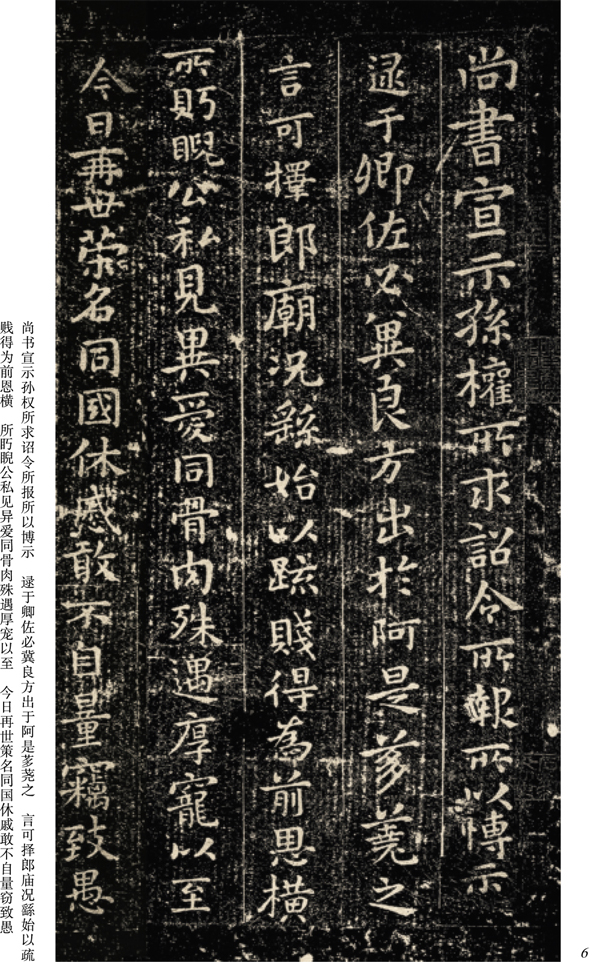 尚書宣示孫權所求詔令所報所以博示
逯于卿佐必冀良方出於阿是芻蕘之
言可擇郎廟況繇始以疏賤得為前恩橫
所眄睨公私見異愛同骨肉殊遇厚寵以至
今日再世榮名同國休慼敢不自量竊致愚
尚书宣示孙权所求诏令所报所以博示 逯于卿佐必冀良方出于阿是芗荛之 言可择郎庙况繇始以疏
贱得为前恩横 所眄睨公私见异爱同骨肉殊遇厚宠以至 今日再世策名同国休戚敢不自量窃致愚
6